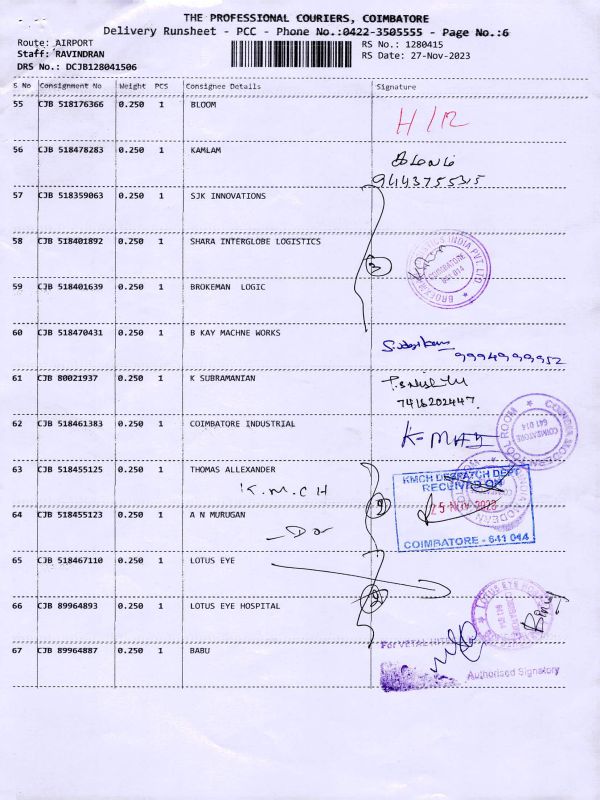 THE PROFESSIONAL COURIERS, COIMBATORE
Delivery Runsheet - PCC - Phone No.:0422-3505555 - Page No.:6
Route: AIRPORT
Staff: RAVINDRAN
DRS No.: DCJB128041506
RS No.: 1280415
RS Date: 27-Nov-2023
S No Consignment No Weight PCS Consignee Details Signature
55 CJB 518176366 0.250 1 BLOOM
H/R
56 CJB 518478283 0.250 1 KAMLAM
9443755315
57 CJB 518359063 0.250 1 SJK INNOVATIONS
58 CJB 518401892 0.250 1 SHARA INTERGLOBE LOGISTICS
3
INDIA PVT. LTD
COIMBATORE
641 014
59 CJB 518401639 0.250 1 BROKEMAN LOGIC
60 CJB 518470431 0.250 1 B KAY MACHNE WORKS
9994999952
61 CJB 80021937 0.250 1 K SUBRAMANIAN
7416202447
62 CJB 518461383 0.250 1 COIMBATORE INDUSTRIAL
COIMBATORE
641 014
63 CJB 518455125 0.250 1 THOMAS ALLEXANDER
K.M.C.H
KMCH DESPATCH DEPT
RECEIVED ON
25 NOV 2023
COIMBATORE - 641 014
64 CJB 518455123 0.250 1 A N MURUGAN
- Do
2
65 CJB 518467110 0.250 1 LOTUS EYE
66 CJB 89964893 0.250 1 LOTUS EYE HOSPITAL
2
LOTUS EYE
67 CJB 89964887 0.250 1 BABU
For VETAL
Authorised Signatory